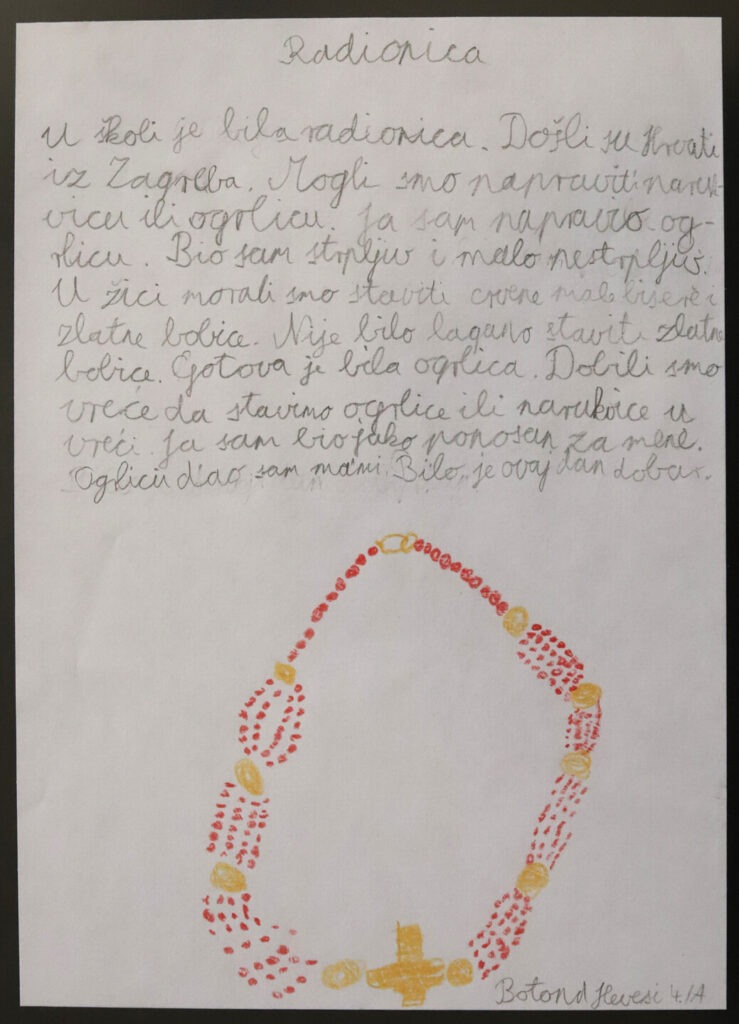 Radionica
U školi je bila radionica. Došli su Hrvati
iz Zagreba. Mogli smo napraviti naruk-
vicu ili ogrlicu. Ja sam napravio og-
rlicu. Bio sam strpljiv i malo nestrpljiv.
U žici morali smo staviti crvene male bisere i
zlatne bobice. Nije bilo lagano staviti zlatne
bobice. Gotova je bila ogrlica. Dobili smo
vreće da stavimo ogrlice ili narukvice u
vreći. Ja sam bio jako ponosan za mene.
Ogrlicu dao sam mami. Bilo je ovaj dan dobar.
Botond Hevesi 4./A